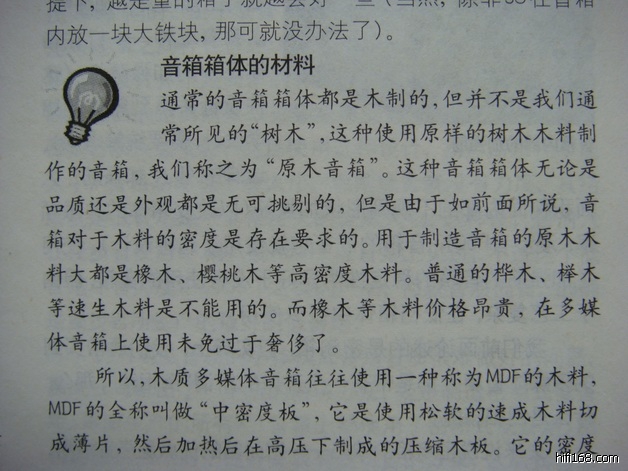 提下，越是重的箱子就越会好一些（当然，除非JS在音箱
内放一块大铁块，那可就没办法了）。
音箱箱体的材料
通常的音箱箱体都是木制的，但并不是我们通
常所见的“树木”，这种使用原样的树木木料制
作的音箱，我们称之为“原木音箱”。这种音箱箱体无论是
品质还是外观都是无可挑剔的，但是由于如前面所说，音
箱对于木料的密度是存在要求的。用于制造音箱的原木木
料大都是橡木、樱桃木等高密度木料。普通的桦木、榉木
等速生木料是不能用的。而橡木等木料价格昂贵，在多媒
体音箱上使用未免过于奢侈了。
所以，木质多媒体音箱往往使用一种称为MDF的木料，
MDF的全称叫做“中密度板”，它是使用松软的速成木料切
成薄片，然后加热后在高压下制成的压缩木板。它的密度
hifi168.com